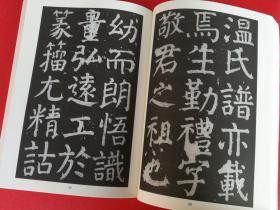 温氏譜亦載
焉生勤禮字
敬君之祖也
幼而朗悟識
量弘遠工於
篆籀尤精詁